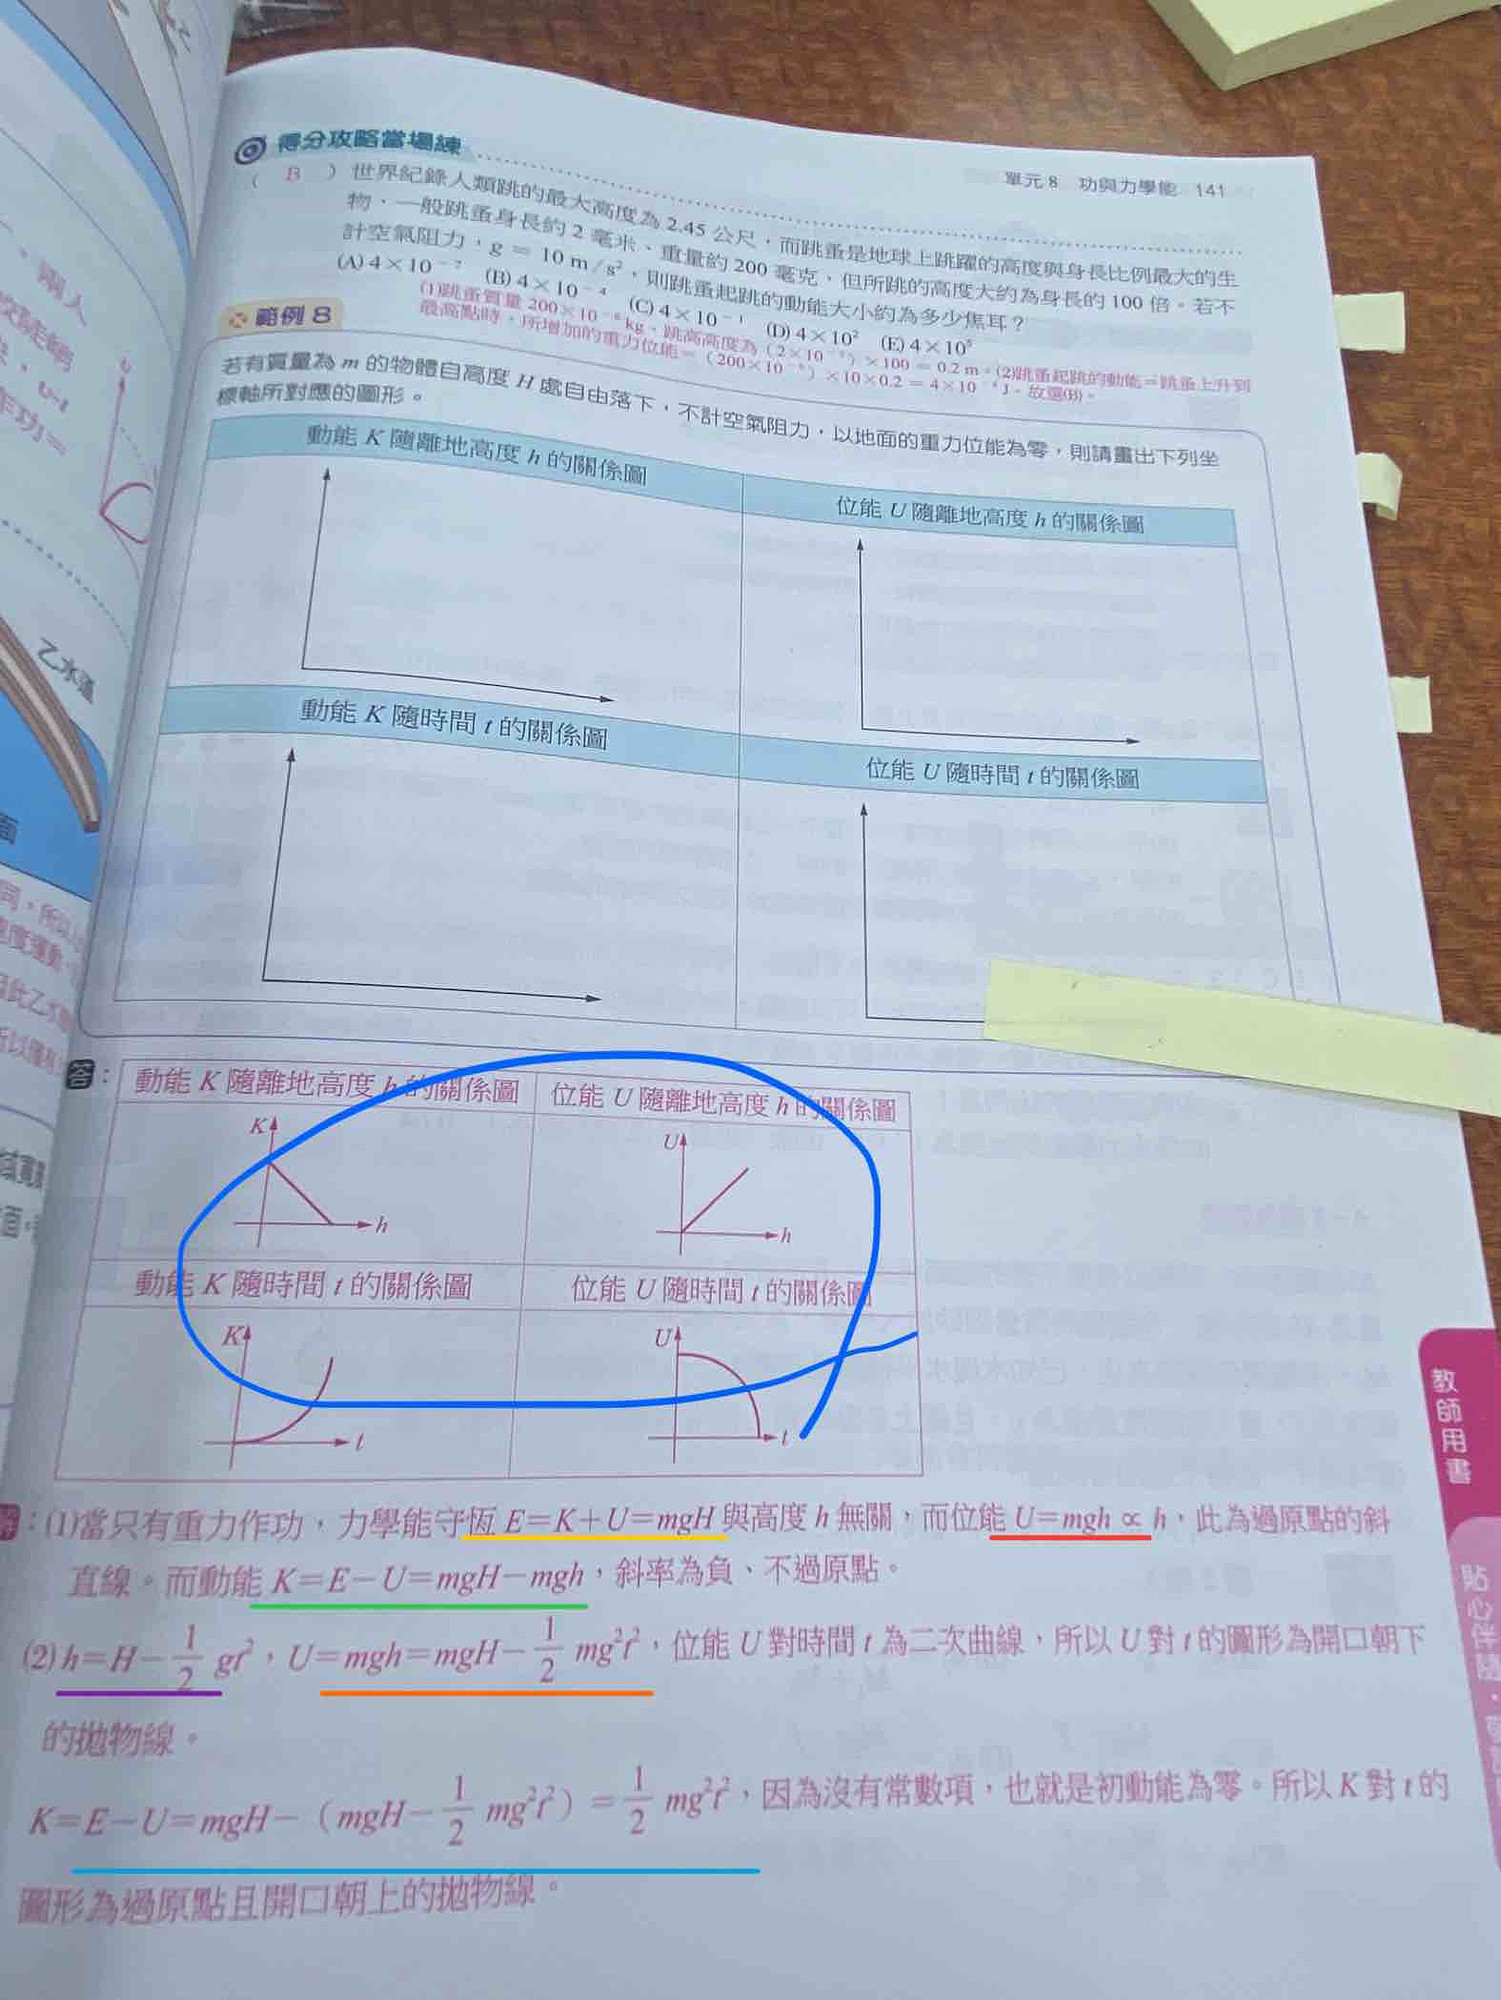 單元 8　功與力學能　141
得分攻略當場練
（ B ）世界紀錄人類跳的最大高度為 2.45 公尺，而跳蚤是地球上跳躍的高度與身長比例最大的生
物，一般跳蚤身長約 2 毫米、重量約 200 毫克，但所跳的高度大約為身長的 100 倍。若不
計空氣阻力，g = 10 m/s²，則跳蚤起跳的動能大小約為多少焦耳？
(A) 4×10⁻² (B) 4×10⁻⁴ (C) 4×10⁻¹ (D) 4×10² (E) 4×10⁵
(1)跳蚤質量 200×10⁻⁶ kg，跳高高度為（2×10⁻³）×100＝0.2 m。(2)跳蚤起跳的動能＝跳蚤上升到
最高點時，所增加的重力位能＝（200×10⁻⁶）×10×0.2＝4×10⁻⁴ J，故選(B)。
範例 8
若有質量為 m 的物體自高度 H 處自由落下，不計空氣阻力，以地面的重力位能為零，則請畫出下列坐
標軸所對應的圖形。
動能 K 隨離地高度 h 的關係圖
位能 U 隨離地高度 h 的關係圖
動能 K 隨時間 t 的關係圖
位能 U 隨時間 t 的關係圖
答：
動能 K 隨離地高度 h 的關係圖
位能 U 隨離地高度 h 的關係圖
K
h
U
h
動能 K 隨時間 t 的關係圖
位能 U 隨時間 t 的關係圖
K
t
U
t
解：(1)當只有重力作功，力學能守恆 E=K+U=mgH 與高度 h 無關，而位能 U=mgh ∝ h，此為過原點的斜
直線。而動能 K=E−U=mgH−mgh，斜率為負、不過原點。
(2) h=H−1/2 gt²，U=mgh=mgH−1/2 mg²t²，位能 U 對時間 t 為二次曲線，所以 U 對 t 的圖形為開口朝下
的拋物線。
K=E−U=mgH−（mgH−1/2 mg²t²）=1/2 mg²t²，因為沒有常數項，也就是初動能為零。所以 K 對 t 的
圖形為過原點且開口朝上的拋物線。
教師用書
貼心伴隨
乙水道
兩人
面